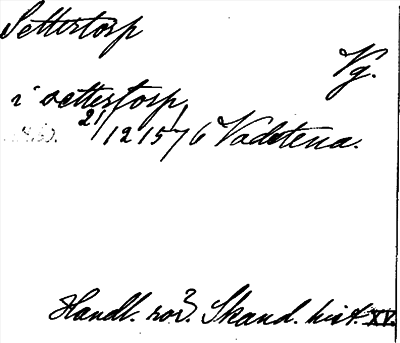 Settertorp
Vg.
i settertorp,
21/12 1576 Vadstena.
Handl. rör. Skand. hist. XV.